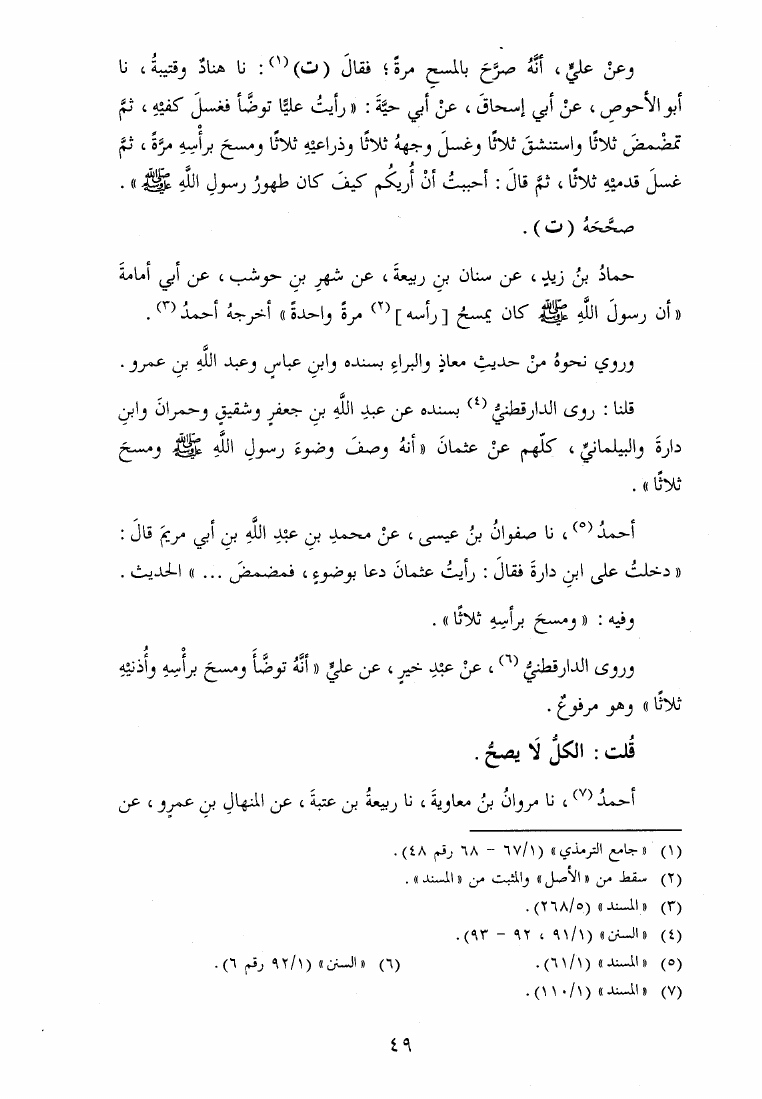 وعنْ عليٍّ ، أنَّهُ صرَّحَ بالمسحِ مرةً ؛ فقالَ (ت)(١) : نا هنادٌ وقتيبةُ ، نا
أبو الأحوصِ ، عنْ أبي إسحاقَ ، عنْ أبي حيَّةَ : « رأيتُ عليًّا توضَّأ فغسلَ كفيْهِ ، ثمَّ
تمضْمضَ ثلاثًا واستنشقَ ثلاثًا وغسلَ وجههُ ثلاثًا وذراعيْهِ ثلاثًا ومسحَ برأْسِهِ مرَّةً ، ثمَّ
غسلَ قدميْهِ ثلاثًا ، ثمَّ قالَ : أحببتُ أنْ أُريَكُم كيفَ كان طهورُ رسولِ اللَّهِ ﷺ » .
صحَّحَهُ (ت) .
حمادُ بنُ زيدٍ ، عن سنان بنِ ربيعةَ ، عن شهرِ بنِ حوشب ، عن أبي أمامةَ
« أن رسولَ اللَّهِ ﷺ كان يمسحُ [ رأسه ](٢) مرةً واحدةً » أخرجهُ أحمدُ(٣) .
وروي نحوهُ منْ حديثِ معاذٍ والبراءِ بسنده وابنِ عباسٍ وعبد اللَّهِ بنِ عمرو .
قلنا : روى الدارقطنيُّ(٤) بسنده عن عبدِ اللَّهِ بنِ جعفرٍ وشقيقٍ وحمرانَ وابنِ
دارةَ والبيلمانيِّ ، كلّهم عنْ عثمانَ « أنهُ وصفَ وضوءَ رسولِ اللَّهِ ﷺ ومسحَ
ثلاثًا » .
أحمدُ(٥) ، نا صفوانُ بنُ عيسى ، عنْ محمدِ بنِ عبْدِ اللَّهِ بنِ أبي مريمَ قالَ :
« دخلتُ على ابنِ دارةَ فقالَ : رأيتُ عثمانَ دعا بوضوءٍ ، فمضمضَ ... » الحديث .
وفيه : « ومسحَ برأسِهِ ثلاثًا » .
وروى الدارقطنيُّ(٦) ، عنْ عبْدِ خيرٍ ، عن عليٍّ « أنَّهُ توضَّأَ ومسحَ برأْسِهِ وأُذنيْهِ
ثلاثًا » وهو مرفوعٌ .
قُلت : الكلُّ لَا يصحُّ .
أحمدُ(٧) ، نا مروانُ بنُ معاويةَ ، نا ربيعةُ بن عتبةَ ، عن المنهالِ بنِ عمرٍو ، عن
(١) « جامع الترمذي » (٦٧/١ – ٦٨ رقم ٤٨).
(٢) سقط من « الأصل » والمثبت من « المسند » .
(٣) « المسند » (٢٦٨/٥).
(٤) « السنن » (٩١/١ ، ٩٢ – ٩٣).
(٥) « المسند » (٦١/١). (٦) « السنن » (٩٢/١ رقم ٦).
(٧) « المسند » (١١٠/١).
٤٩